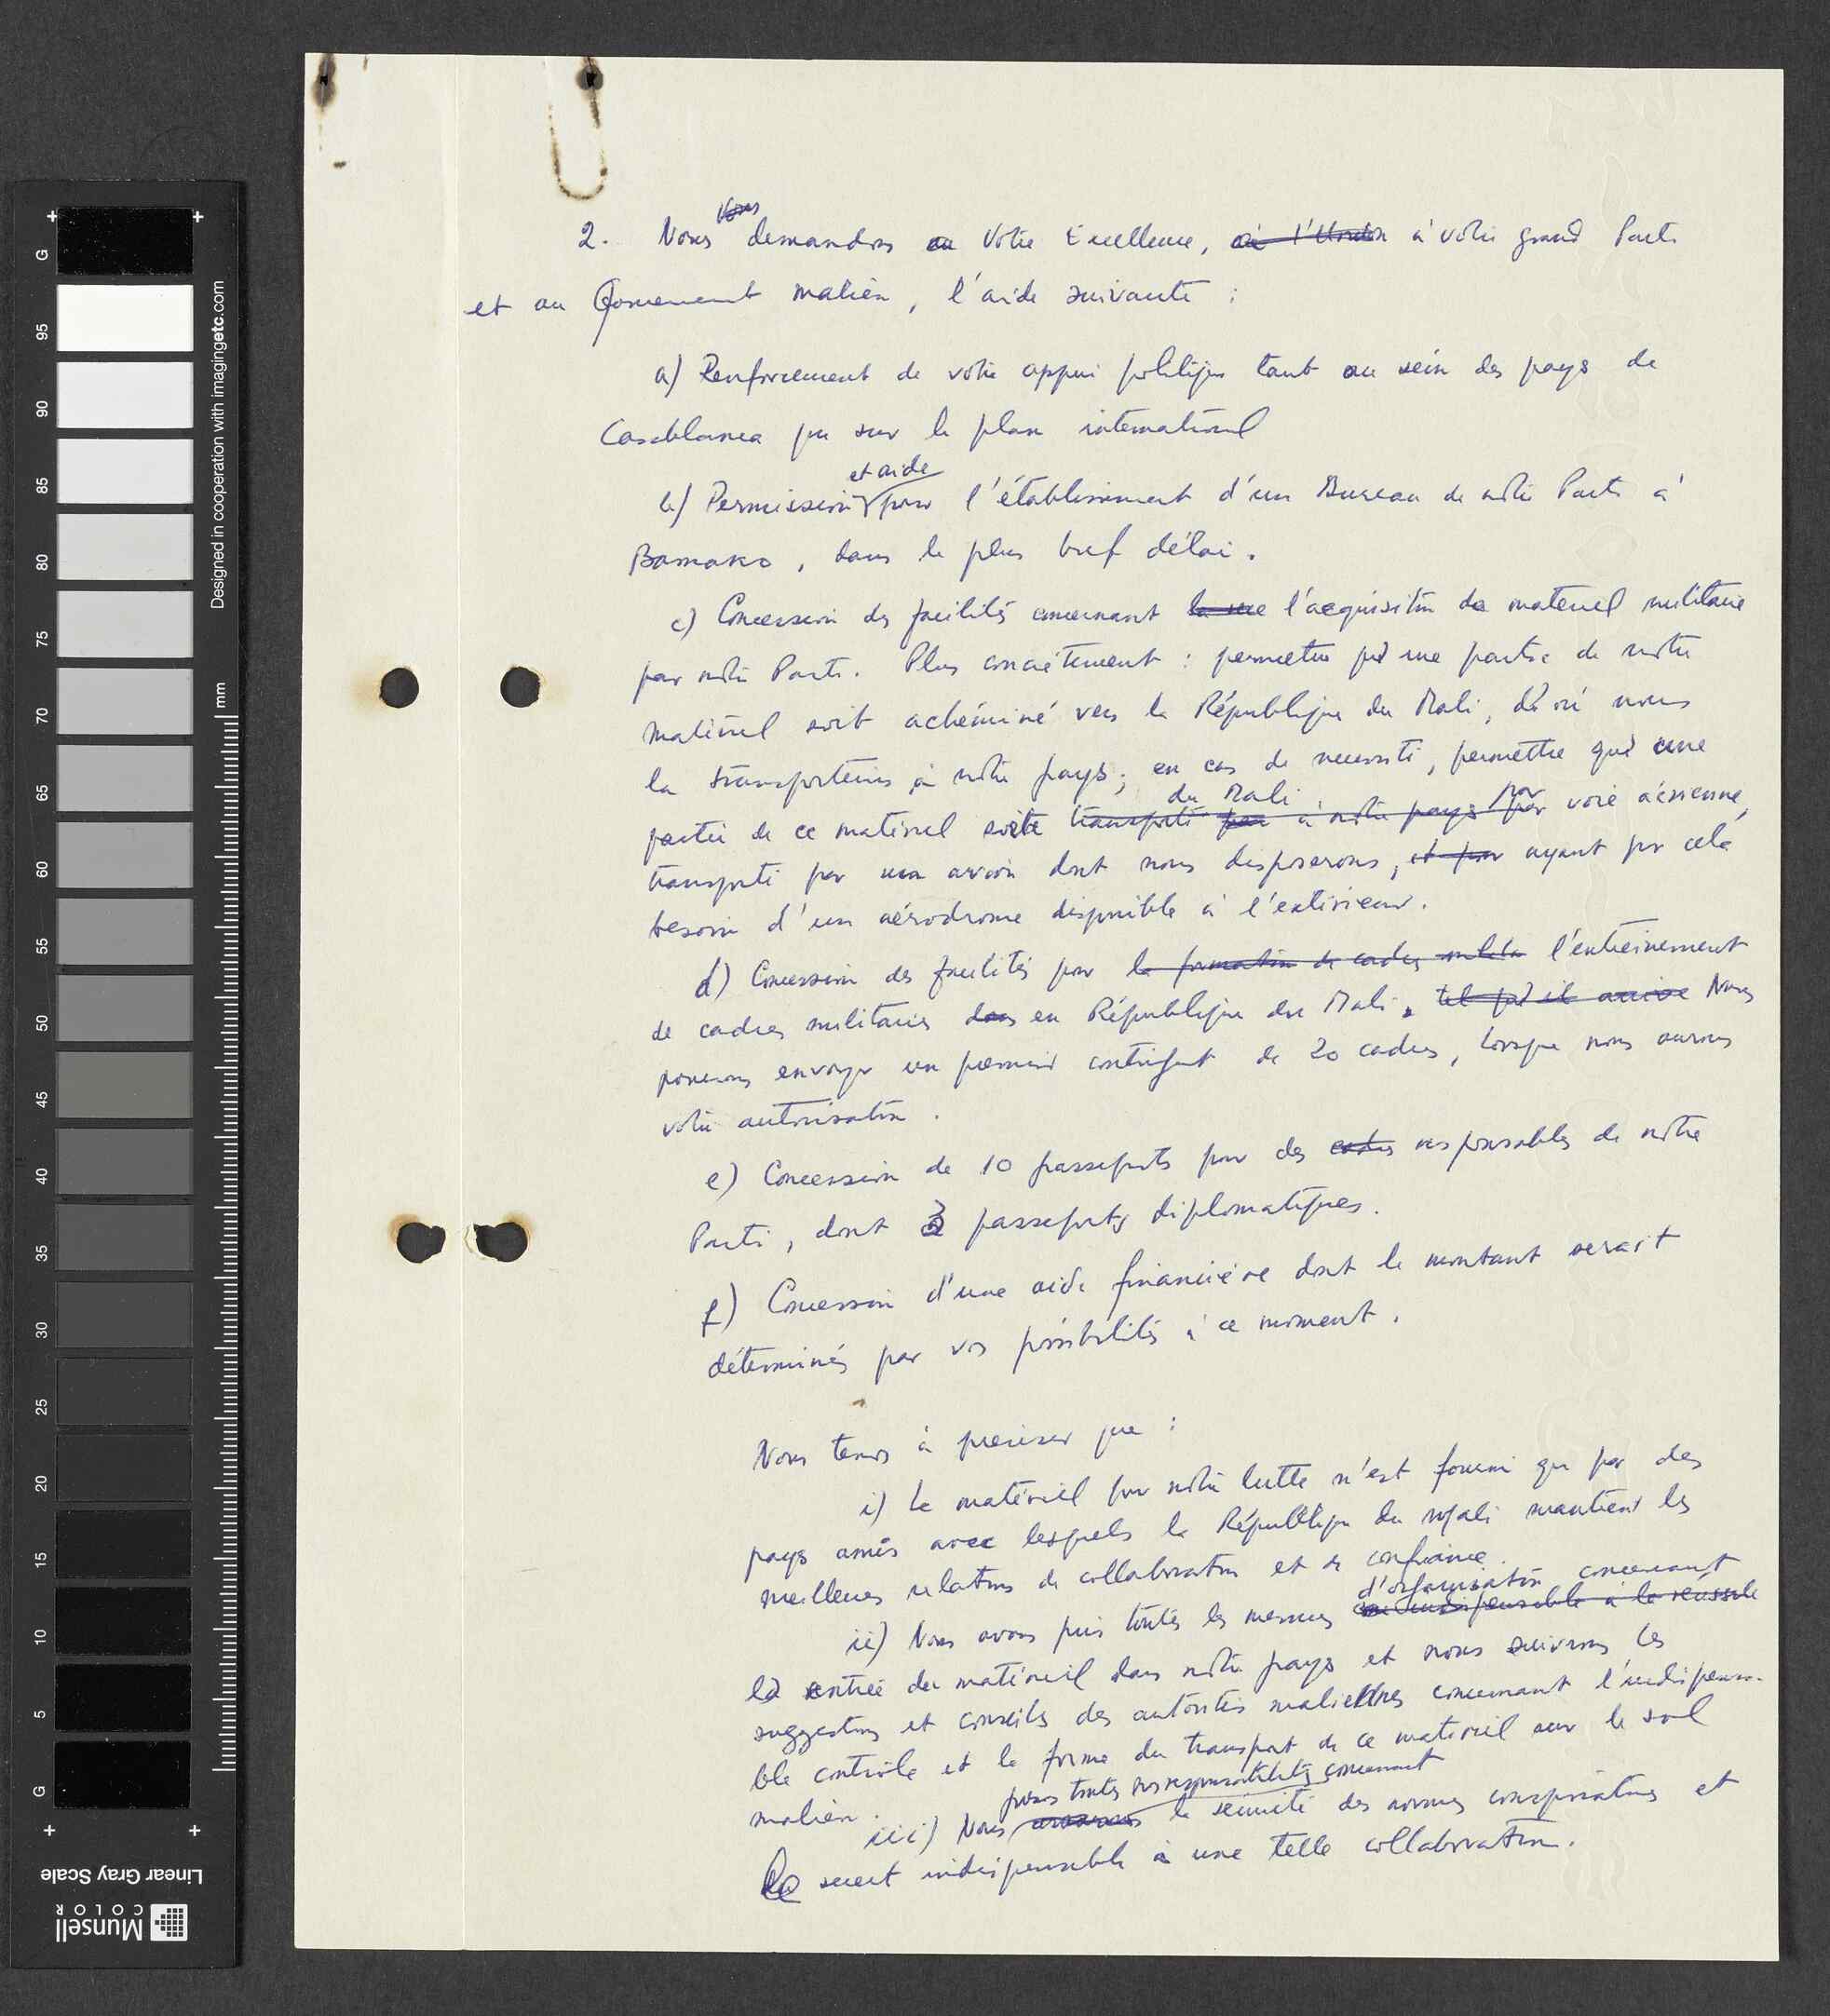 2. Nous demandons à Votre Excellence, à votre grand Parti
et au Gouvernement malien, l'aide suivante :
a) Renforcement de votre appui politique tant au sein des pays de
Casablanca que sur le plan international
et aide
b) Permission pour l'établissement d'un Bureau de notre Parti à
Bamako, dans le plus bref délai.
c) Concession des facilités concernant l'acquisition de materiel militaire
par notre Parti. Plus concrètement : permettre qu'une partie de notre
matériel soit achéminé vers la République du Mali, d'où nous
la transporterions à notre pays; en cas de necessité, permettre qu'une
du Mali, par
partie de ce matériel soit transporté à notre pays par voie aérienne,
transporté par un avion dont nous disposerons, et pour ayant pour cela
besoin d'un aérodrome disponible à l'extérieur.
d) Concession des facilités pour la formation de cadres l'entreinement
de cadres militaires dans en République du Mali. tel qu'il arrive Nous
pourrons envoyer un premier contingent de 20 cadres, lorsque nous aurons
votre autorisation.
e) Concession de 10 passeports pour des cadres responsables de notre
Parti, dont 3 passeports diplomatiques.
f) Concession d'une aide financière dont le montant serait
déterminés par vos possibilités à ce moment.
Nous tenons à preciser que :
i) Le matériel pour notre lutte n'est fourni que par des
pays amis avec lesquels la République du Mali maintient les
meilleures relations de collaboration et de confiance.
d'organisation concernant
ii) Nous avons pris toutes les mesures indispensable à la réussite
la entrée du matériel dans notre pays et nous suivrons les
suggestions et conseils des autorités maliennes concernant l'indispensa-
ble contrôle et la forme du transport de ce matériel sur le sol
malien.
prenons toutes nos responsabilités concernant
iii) Nous la sécurité des normes conspiratives et
le secret indispensable à une telle collaboration.
Designed in cooperation with imagingetc.com
mm
G 95 90 85 80 75 70 65 60 55 50 45 40 35 30 25 20 15 10 5 G
Linear Gray Scale
Munsell
COLOR